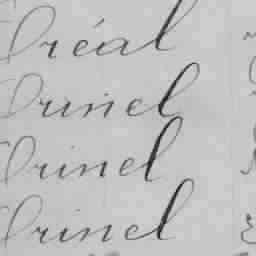 Oréal
Orinel
Orinel
Orinel